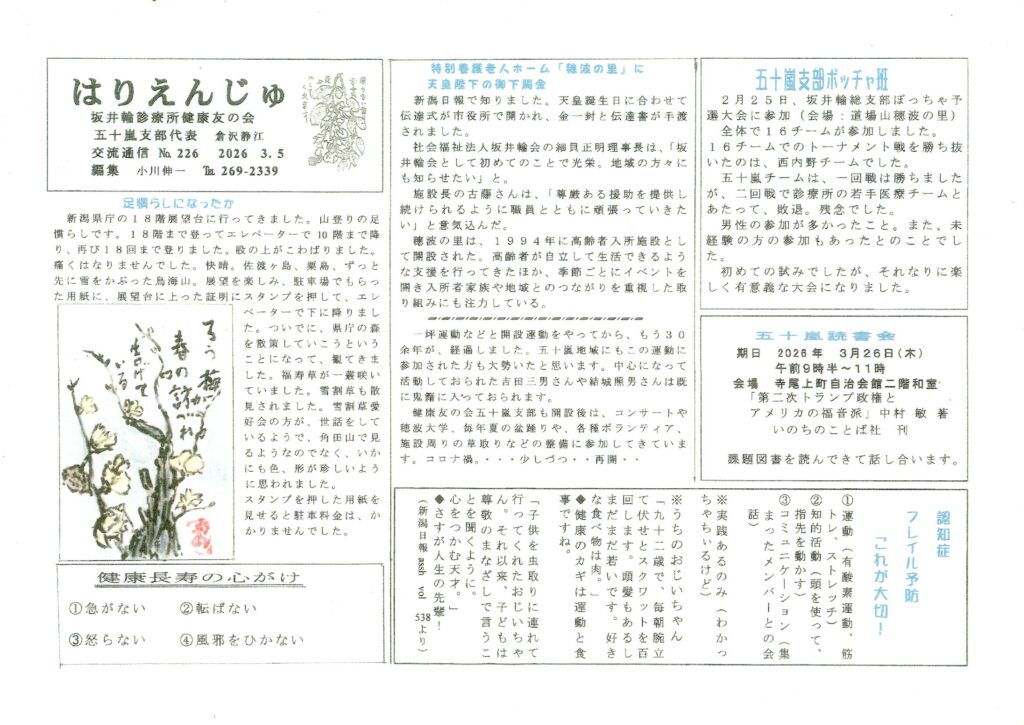 はりえんじゅ
坂井輪診療所健康友の会
五十嵐支部代表 倉沢静江
交流通信 № 226 2026 3.5
編集 小川伸一 ℡ 269-2339
足慣らしになったか
新潟県庁の18階展望台に行ってきました。山登りの足
慣らしです。18階まで登ってエレベーターで10階まで降
り、再び18回まで登りました。股の上がこわばりました。
痛くはなりませんでした。快晴。佐渡ヶ島、粟島、ずっと
先に雪をかぶった鳥海山。展望を楽しみ、駐車場でもらっ
た用紙に、展望台に上った証明にスタンプを押して、エレ
ベーターで下に降りまし
た。ついでに、県庁の森
を散策していこうという
ことになって、観てきま
した。福寿草が一叢咲い
ていました。雪割草も散
見されました。雪割草愛
好会の方が、世話をして
いるようで、角田山で見
るようなのでなく、いか
にも色、形が珍しいよう
に思われました。
スタンプを押した用紙を
見せると駐車料金は、か
かりませんでした。
春の訪れ
健康長寿の心がけ
①急がない ②転ばない
③怒らない ④風邪をひかない
特別養護老人ホーム「穂波の里」に
天皇陛下の御下賜金
新潟日報で知りました。天皇誕生日に合わせて
伝達式が市役所で開かれ、金一封と伝達書が手渡
されました。
社会福祉法人坂井輪会の細貝正明理事長は、「坂
井輪会として初めてのことで光栄。地域の方々に
も知らせたい」と。
施設長の古藤さんは、「尊厳ある援助を提供し
続けられるように職員とともに頑張っていきた
い」と意気込んだ。
穂波の里は、1994年に高齢者入所施設とし
て開設された。高齢者が自立して生活できるよう
な支援を行ってきたほか、季節ごとにイベントを
開き入所者家族や地域とのつながりを重視した取
り組みにも注力している。
一坪運動などと開設運動をやってから、もう30
余年が、経過しました。五十嵐地域にもこの運動に
参加された方も大勢いたと思います。中心になって
活動しておられた吉田三男さんや結城照男さんは既
に鬼籍に入っておられます。
健康友の会五十嵐支部も開設後は、コンサートや
穂波大学、毎年夏の盆踊りや、各種ボランティア、
施設周りの草取りなどの整備に参加してきていま
す。コロナ禍。・・・少しづつ・・再開・・
五十嵐支部ボッチャ班
2月25日、坂井輪総支部ぼっちゃ予
選大会に参加(会場:道場山穂波の里)
全体で16チームが参加しました。
16チームでのトーナメント戦を勝ち抜
いたのは、西内野チームでした。
五十嵐チームは、一回戦は勝ちました
が、二回戦で診療所の若手医療チームと
あたって、敗退。残念でした。
男性の参加が多かったこと。また、未
経験の方の参加もあったとのことでし
た。
初めての試みでしたが、それなりに楽
しく有意義な大会になりました。
五十嵐読書会
期日 2026年 3月26日(木)
午前9時半~11時
会場 寺尾上町自治会館二階和室
「第二次トランプ政権と
アメリカの福音派」中村 敏 著
いのちのことば社 刊
課題図書を読んできて話し合います。
認知症
フレイル予防
「これが大切!
①運動(有酸素運動、筋
トレ、ストレッチ)
②知的活動(頭を使って、
指先を動かす)
③コミュニケーション(集
まったメンバーとの会
話)
※実践あるのみ(わかっ
ちゃいるけど)
※うちのおじいちゃん
「九十二歳で、毎朝腕立
て伏せとスクワットを百
回します。頭髪もあるし
まだまだ若いです。好き
な食べ物は肉。」
◆健康のカギは運動と食
事ですね。
「子供を虫取りに連れて
行ってくれたおじいちゃ
ん。それ以来、子どもは
尊敬のまなざしで言うこ
とを聞くように。
心をつかむ天才。」
◆さすが人生の先輩!
(新潟日報 assh vol 538より)